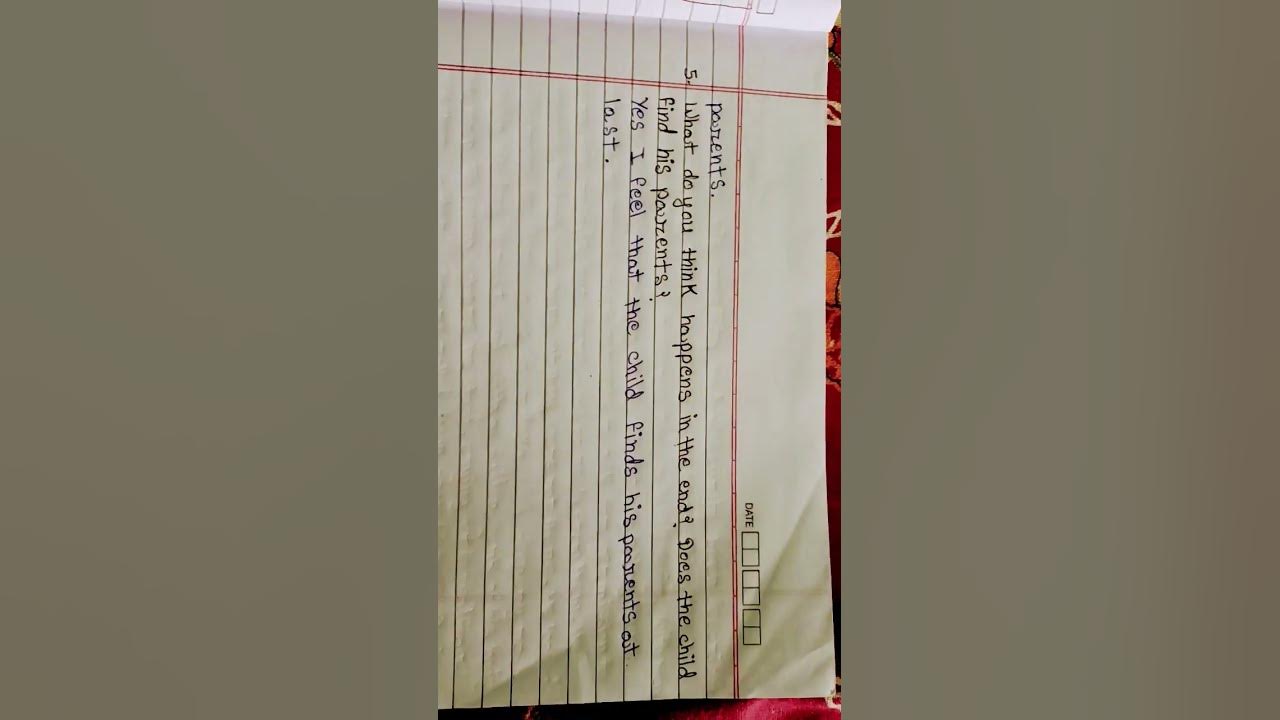 DATE
parents.
5. What do you think happens in the end? Does the child
find his parents?
Yes I feel that the child finds his parents at
last.